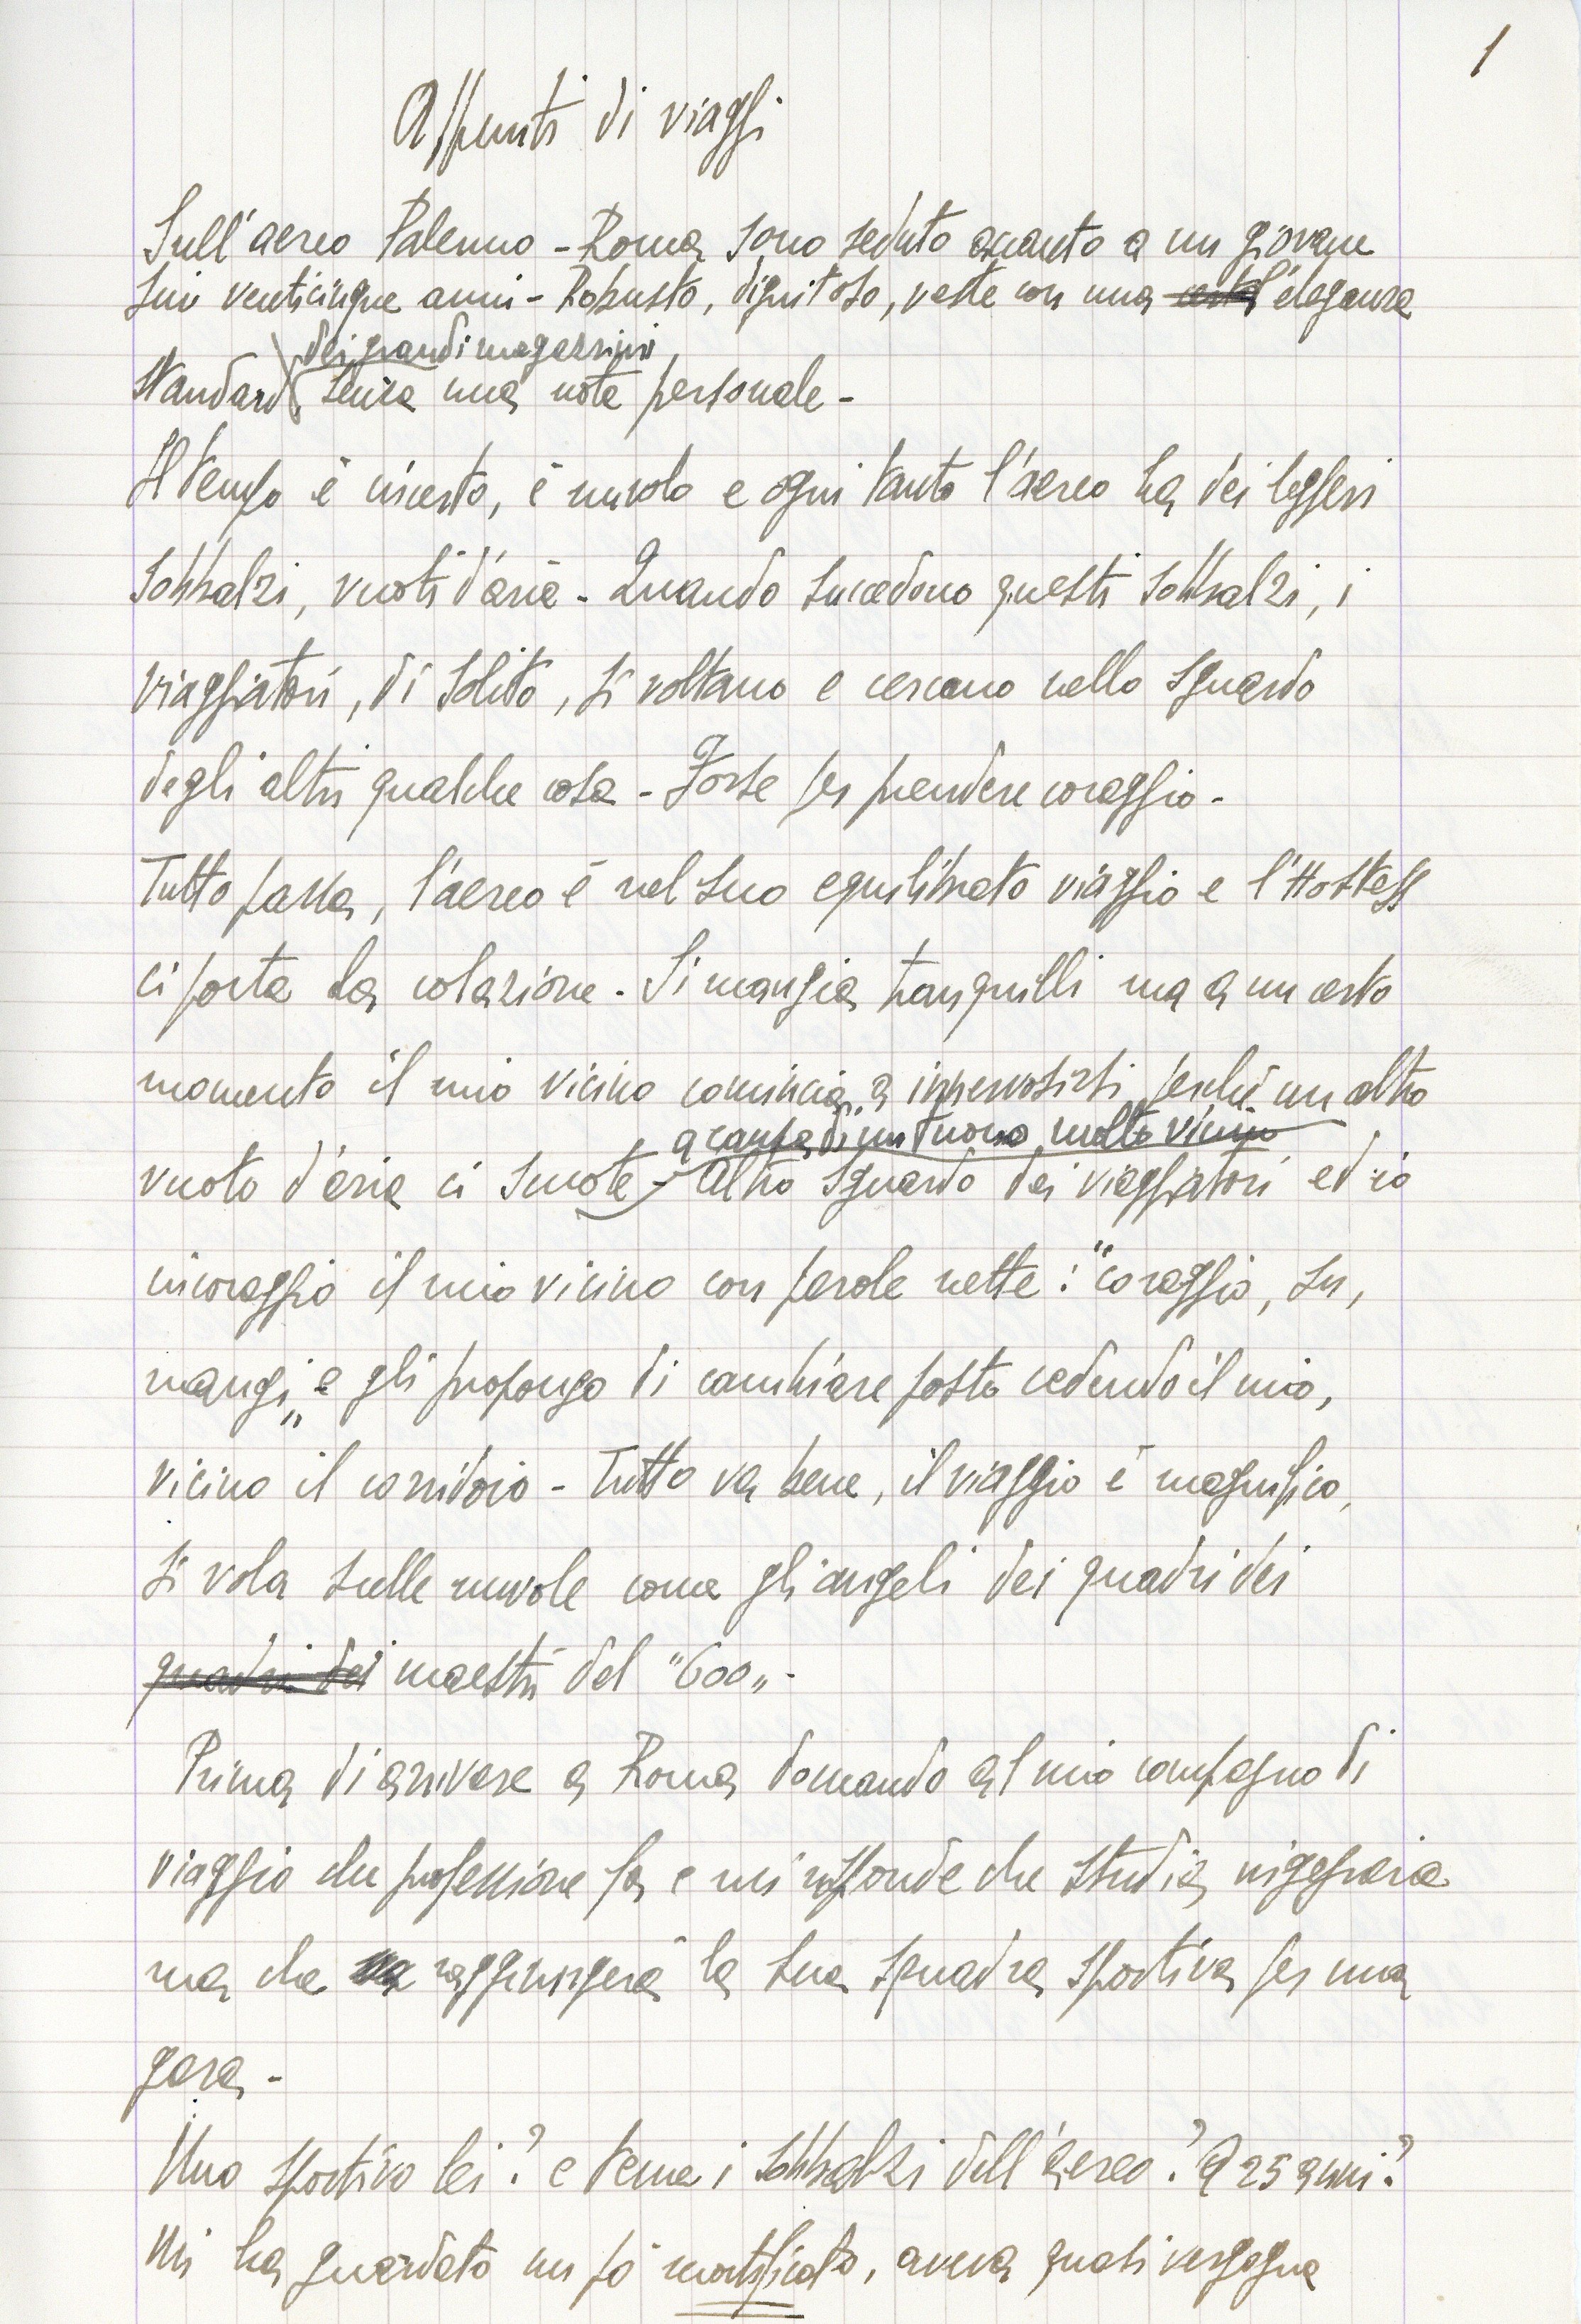 1
Appunti di viaggi
Sull'aereo Palermo - Roma sono seduto accanto a un giovane
sui venticinque anni - Robusto, dignitoso, veste con una certa eleganza
dei grandi magazzini
standard, senza una nota personale -
Il tempo è incerto, è nuvolo e ogni tanto l'aereo ha dei leggeri
sobbalzi, vuoti d'aria - Quando succedono questi sobbalzi, i
viaggiatori, di solito, si voltano e cercano nello sguardo
degli altri qualche cosa - Forse per prendere coraggio -
Tutto passa, l'aereo è nel suo equilibrato viaggio e l'Hostess
ci porta la colazione - Si mangia tranquilli ma a un certo
momento il mio vicino comincia a innervosirsi perché un altro
a causa di un tuono molto vicino
vuoto d'aria ci scuote - Altro sguardo dei viaggiatori ed io
incoraggio il mio vicino con parole nette: "coraggio, su,
mangi„ e gli propongo di cambiare posto cedendo il mio,
vicino il corridoio - Tutto va bene, il viaggio è magnifico,
si vola sulle nuvole come gli angeli dei quadri dei
quadri dei maestri del "600„ -
Prima di arrivare a Roma domando al mio compagno di
viaggio che professione fa e mi risponde che studia
ma che va raggiungerà la sua squadra sportiva per una
gara -
Uno sportivo lei? e teme i sobbalzi dell'aereo? a 25 anni?
Mi ha guardato un pò mortificato, aveva quasi vergogna